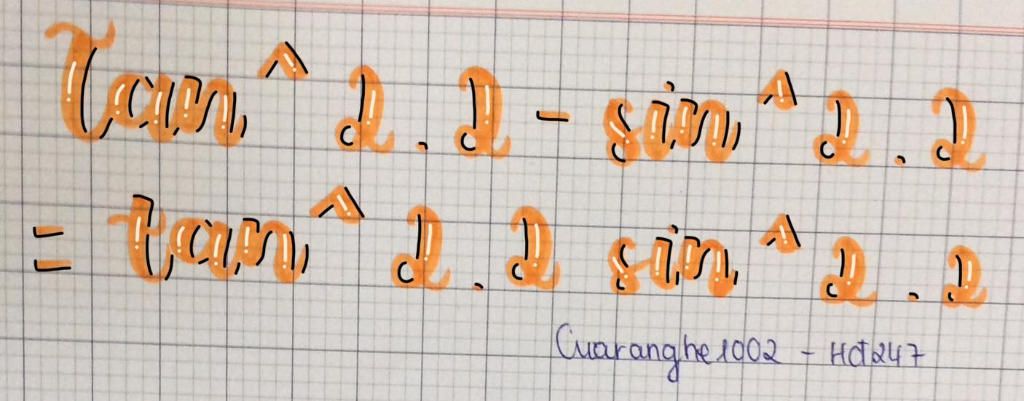 Tan^2.2 - sin^2.2
= tan^2.2 sin^2.2
Cuaranghe1002 - Hdt247